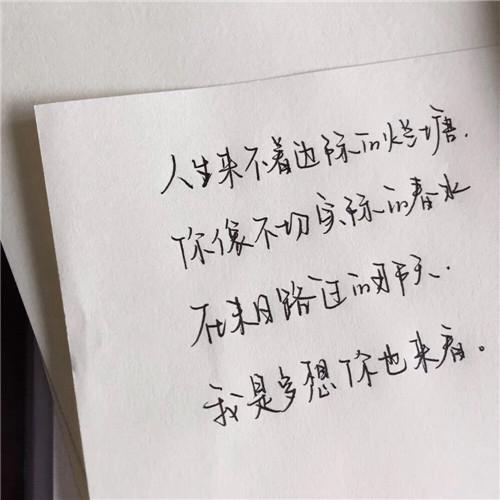 人生来不着边际的烂塘.
你像不切实际的春水
在某日路过的那天.
我是多想你也来看。